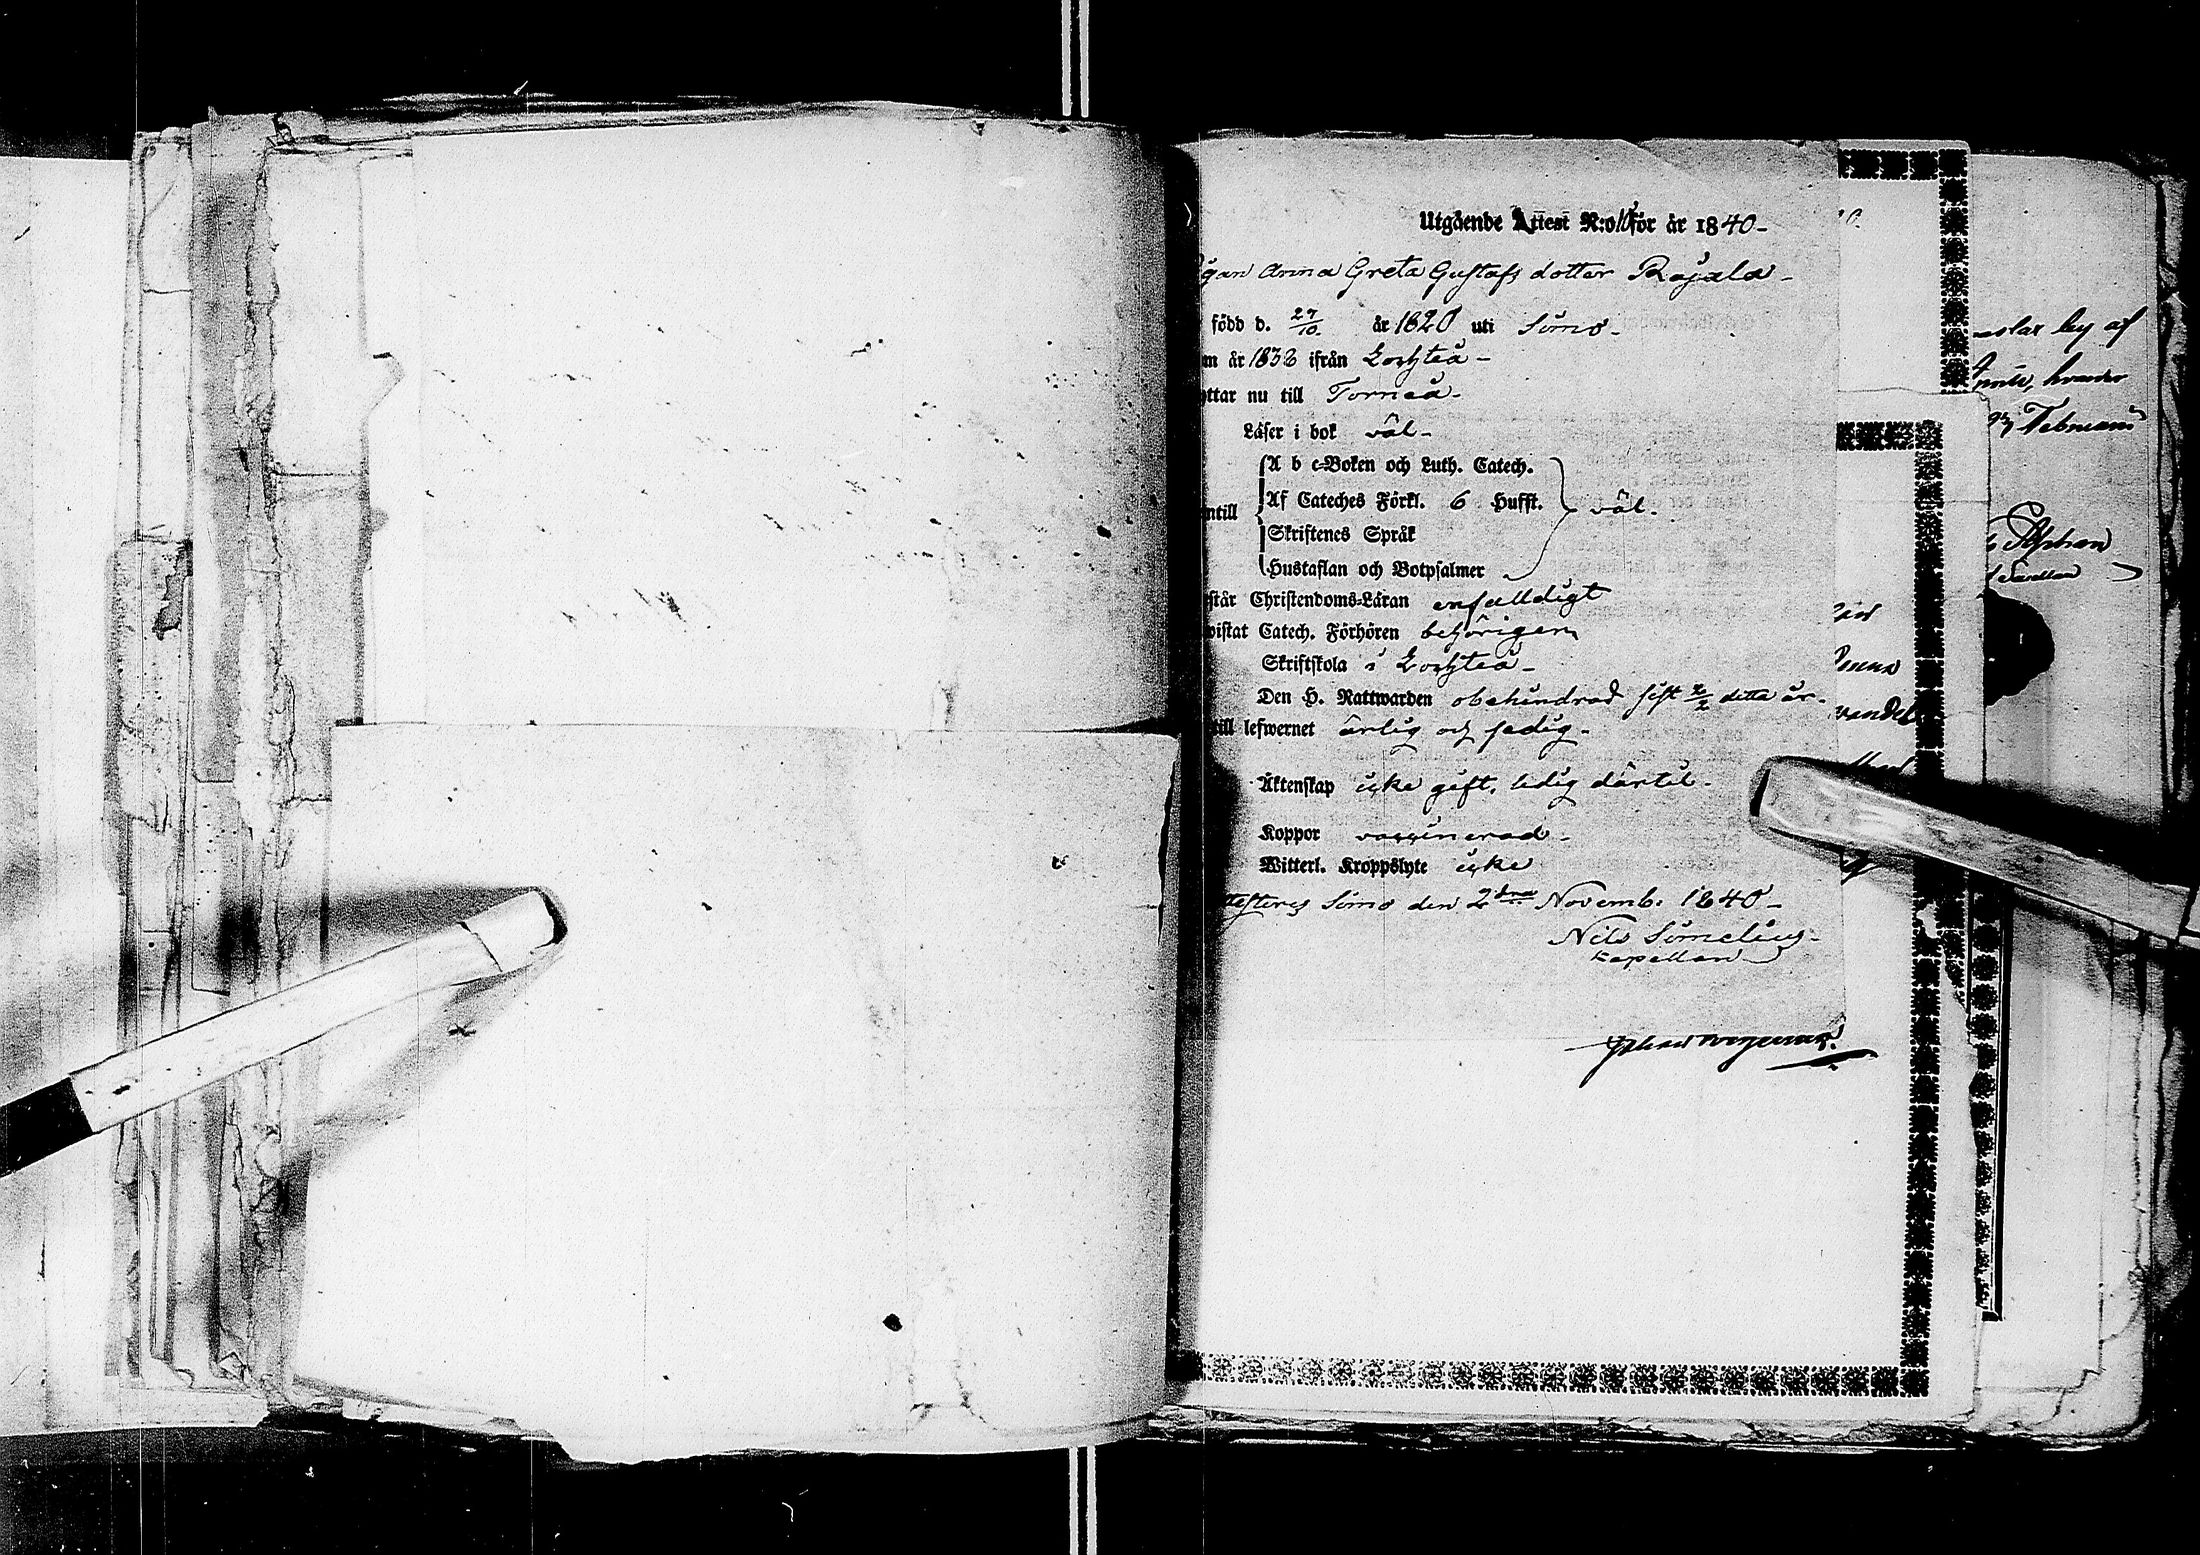 Utgående Attest N:o 10 för år 1840-
Pigan Anna Greta Gustafs dotter Rajala-
född d. 27/10. år 1820 uti Simo-
om år 1838 ifrån Lochteå-
yttar nu till Torneå-
Läser i bok väl-
A b c-Boken och Luth. Catech.
Af Cateches Förkl. 6 Hufst.
ntill väl.
Skriftenes Språk
Hustaflan och Botpsalmer
rstår Christendoms-Läran enfalldigt
wistat Catech. Förhören behörigen
Skriftskola i Lochteå-
Den H. Nattwarden obehindrad sist 2/2 detta år-
till lefwernet ärlig och sedig-
Äktenskap icke gift, ledig därtil-
Koppor vaccinerad-
Witterl. Kroppslyte icke
ttesteres Simo den 2dra Novemb. 1840-
Nils Simelius-
Kapellan
by af
Stephan
Kapellan